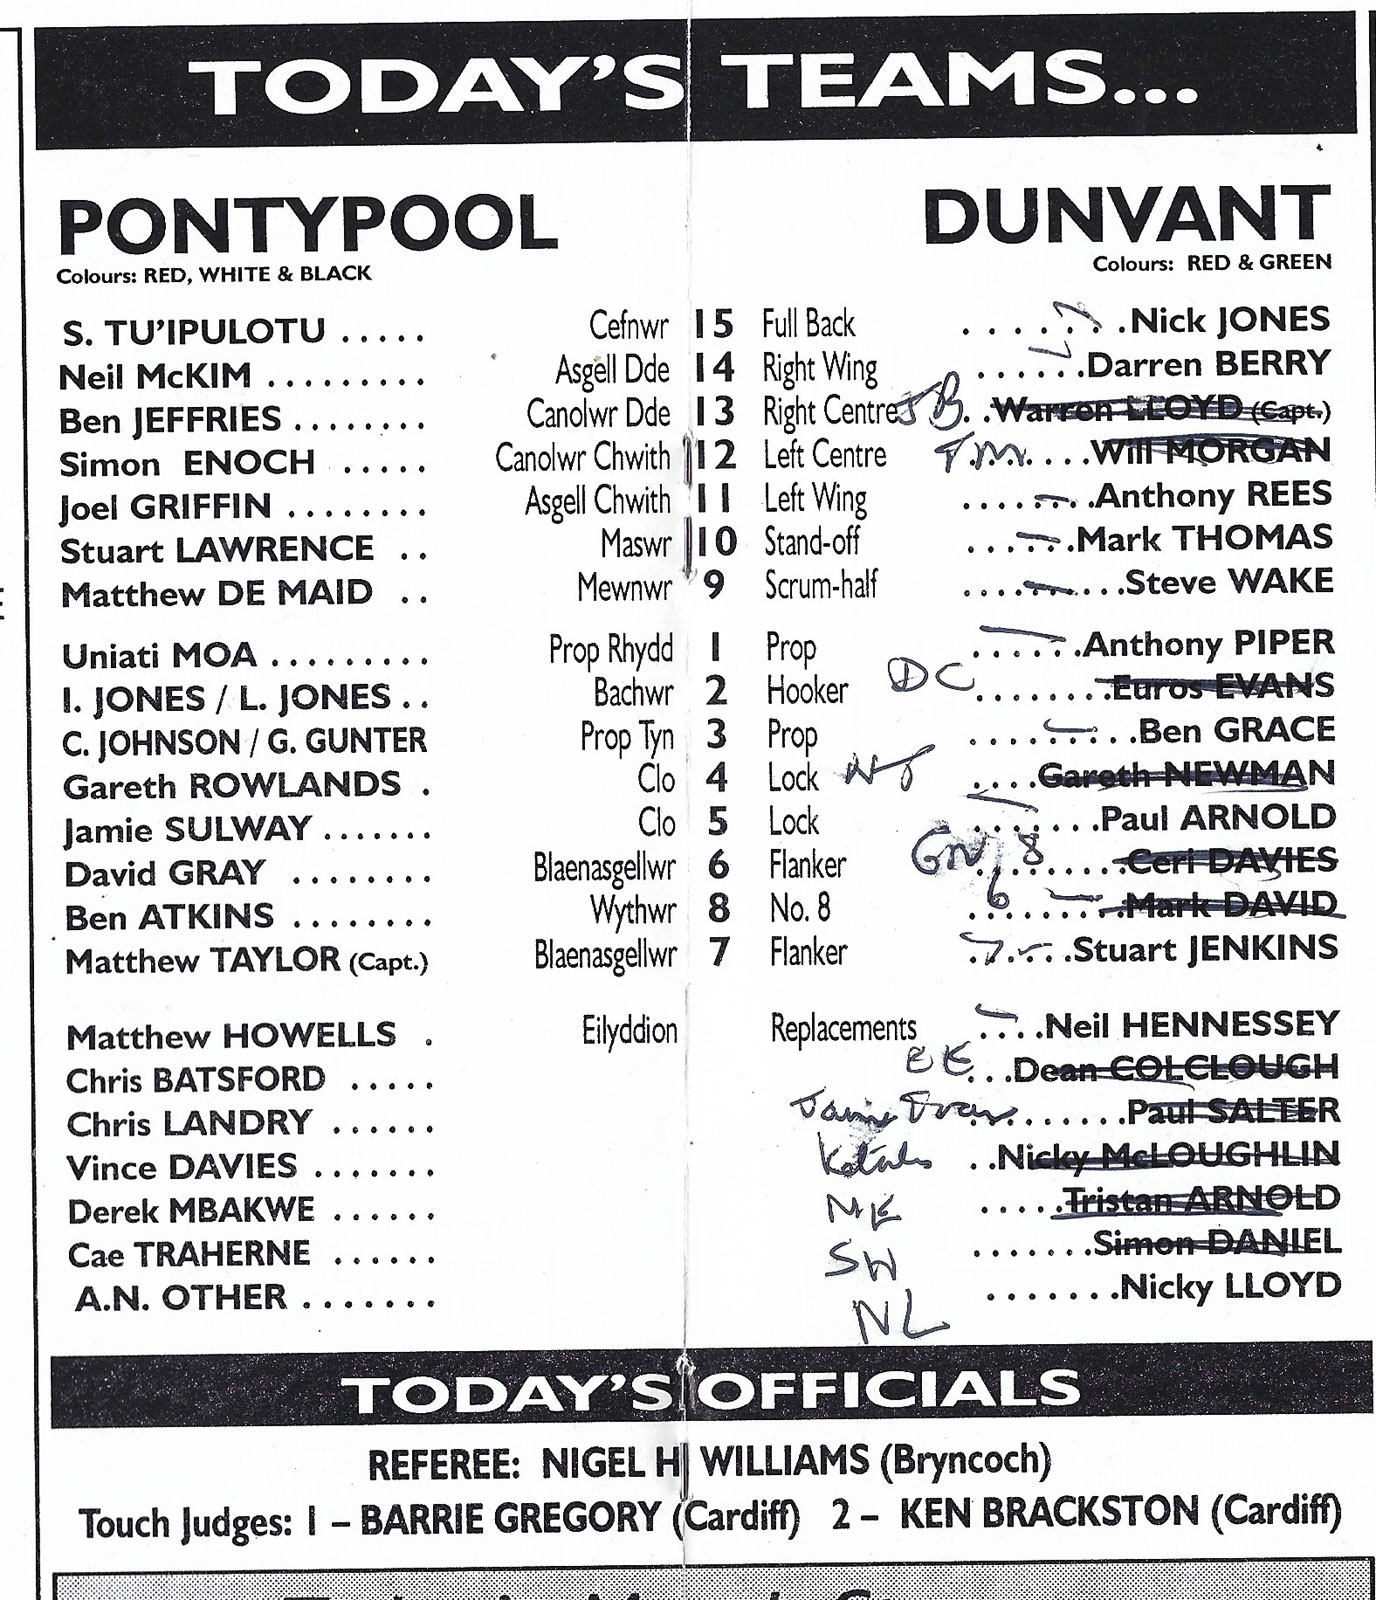 TODAY'S TEAMS...
PONTYPOOL DUNVANT
Colours: RED, WHITE & BLACK Colours: RED & GREEN
S. TU'IPULOTU ..... Cefnwr 15 Full Back ...... .Nick JONES
Neil McKIM ......... Asgell Dde 14 Right Wing ......Darren BERRY
Ben JEFFRIES ........ Canolwr Dde 13 Right Centre JB. .Warren LLOYD (Capt.)
Simon ENOCH ..... Canolwr Chwith 12 Left Centre TM.......Will MORGAN
Joel GRIFFIN ........ Asgell Chwith 11 Left Wing ........Anthony REES
Stuart LAWRENCE .. Maswr 10 Stand-off .......Mark THOMAS
Matthew DE MAID .. Mewnwr 9 Scrum-half ..........Steve WAKE
Uniati MOA ......... Prop Rhydd 1 Prop ......Anthony PIPER
I. JONES / L. JONES .. Bachwr 2 Hooker DC ........Euros EVANS
C. JOHNSON / G. GUNTER Prop Tyn 3 Prop .........Ben GRACE
Gareth ROWLANDS . Clo 4 Lock NJ ....Gareth NEWMAN
Jamie SULWAY ....... Clo 5 Lock ........Paul ARNOLD
David GRAY ........ Blaenasgellwr 6 Flanker GN 8 .........Ceri DAVIES
Ben ATKINS ........ Wythwr 8 No. 8 6 .........Mark DAVID
Matthew TAYLOR (Capt.) Blaenasgellwr 7 Flanker 7 ......Stuart JENKINS
Matthew HOWELLS . Eilyddion Replacements .....Neil HENNESSEY
Chris BATSFORD ..... EE ...Dean COLCLOUGH
Chris LANDRY ...... Jamie Evans .......Paul SALTER
Vince DAVIES ....... ..Nicky McLOUGHLIN
Derek MBAKWE ...... NE ......Tristan ARNOLD
Cae TRAHERNE ...... SW .......Simon DANIEL
A.N. OTHER ....... NL .......Nicky LLOYD
TODAY'S OFFICIALS
REFEREE: NIGEL H WILLIAMS (Bryncoch)
Touch Judges: 1 – BARRIE GREGORY (Cardiff) 2 – KEN BRACKSTON (Cardiff)